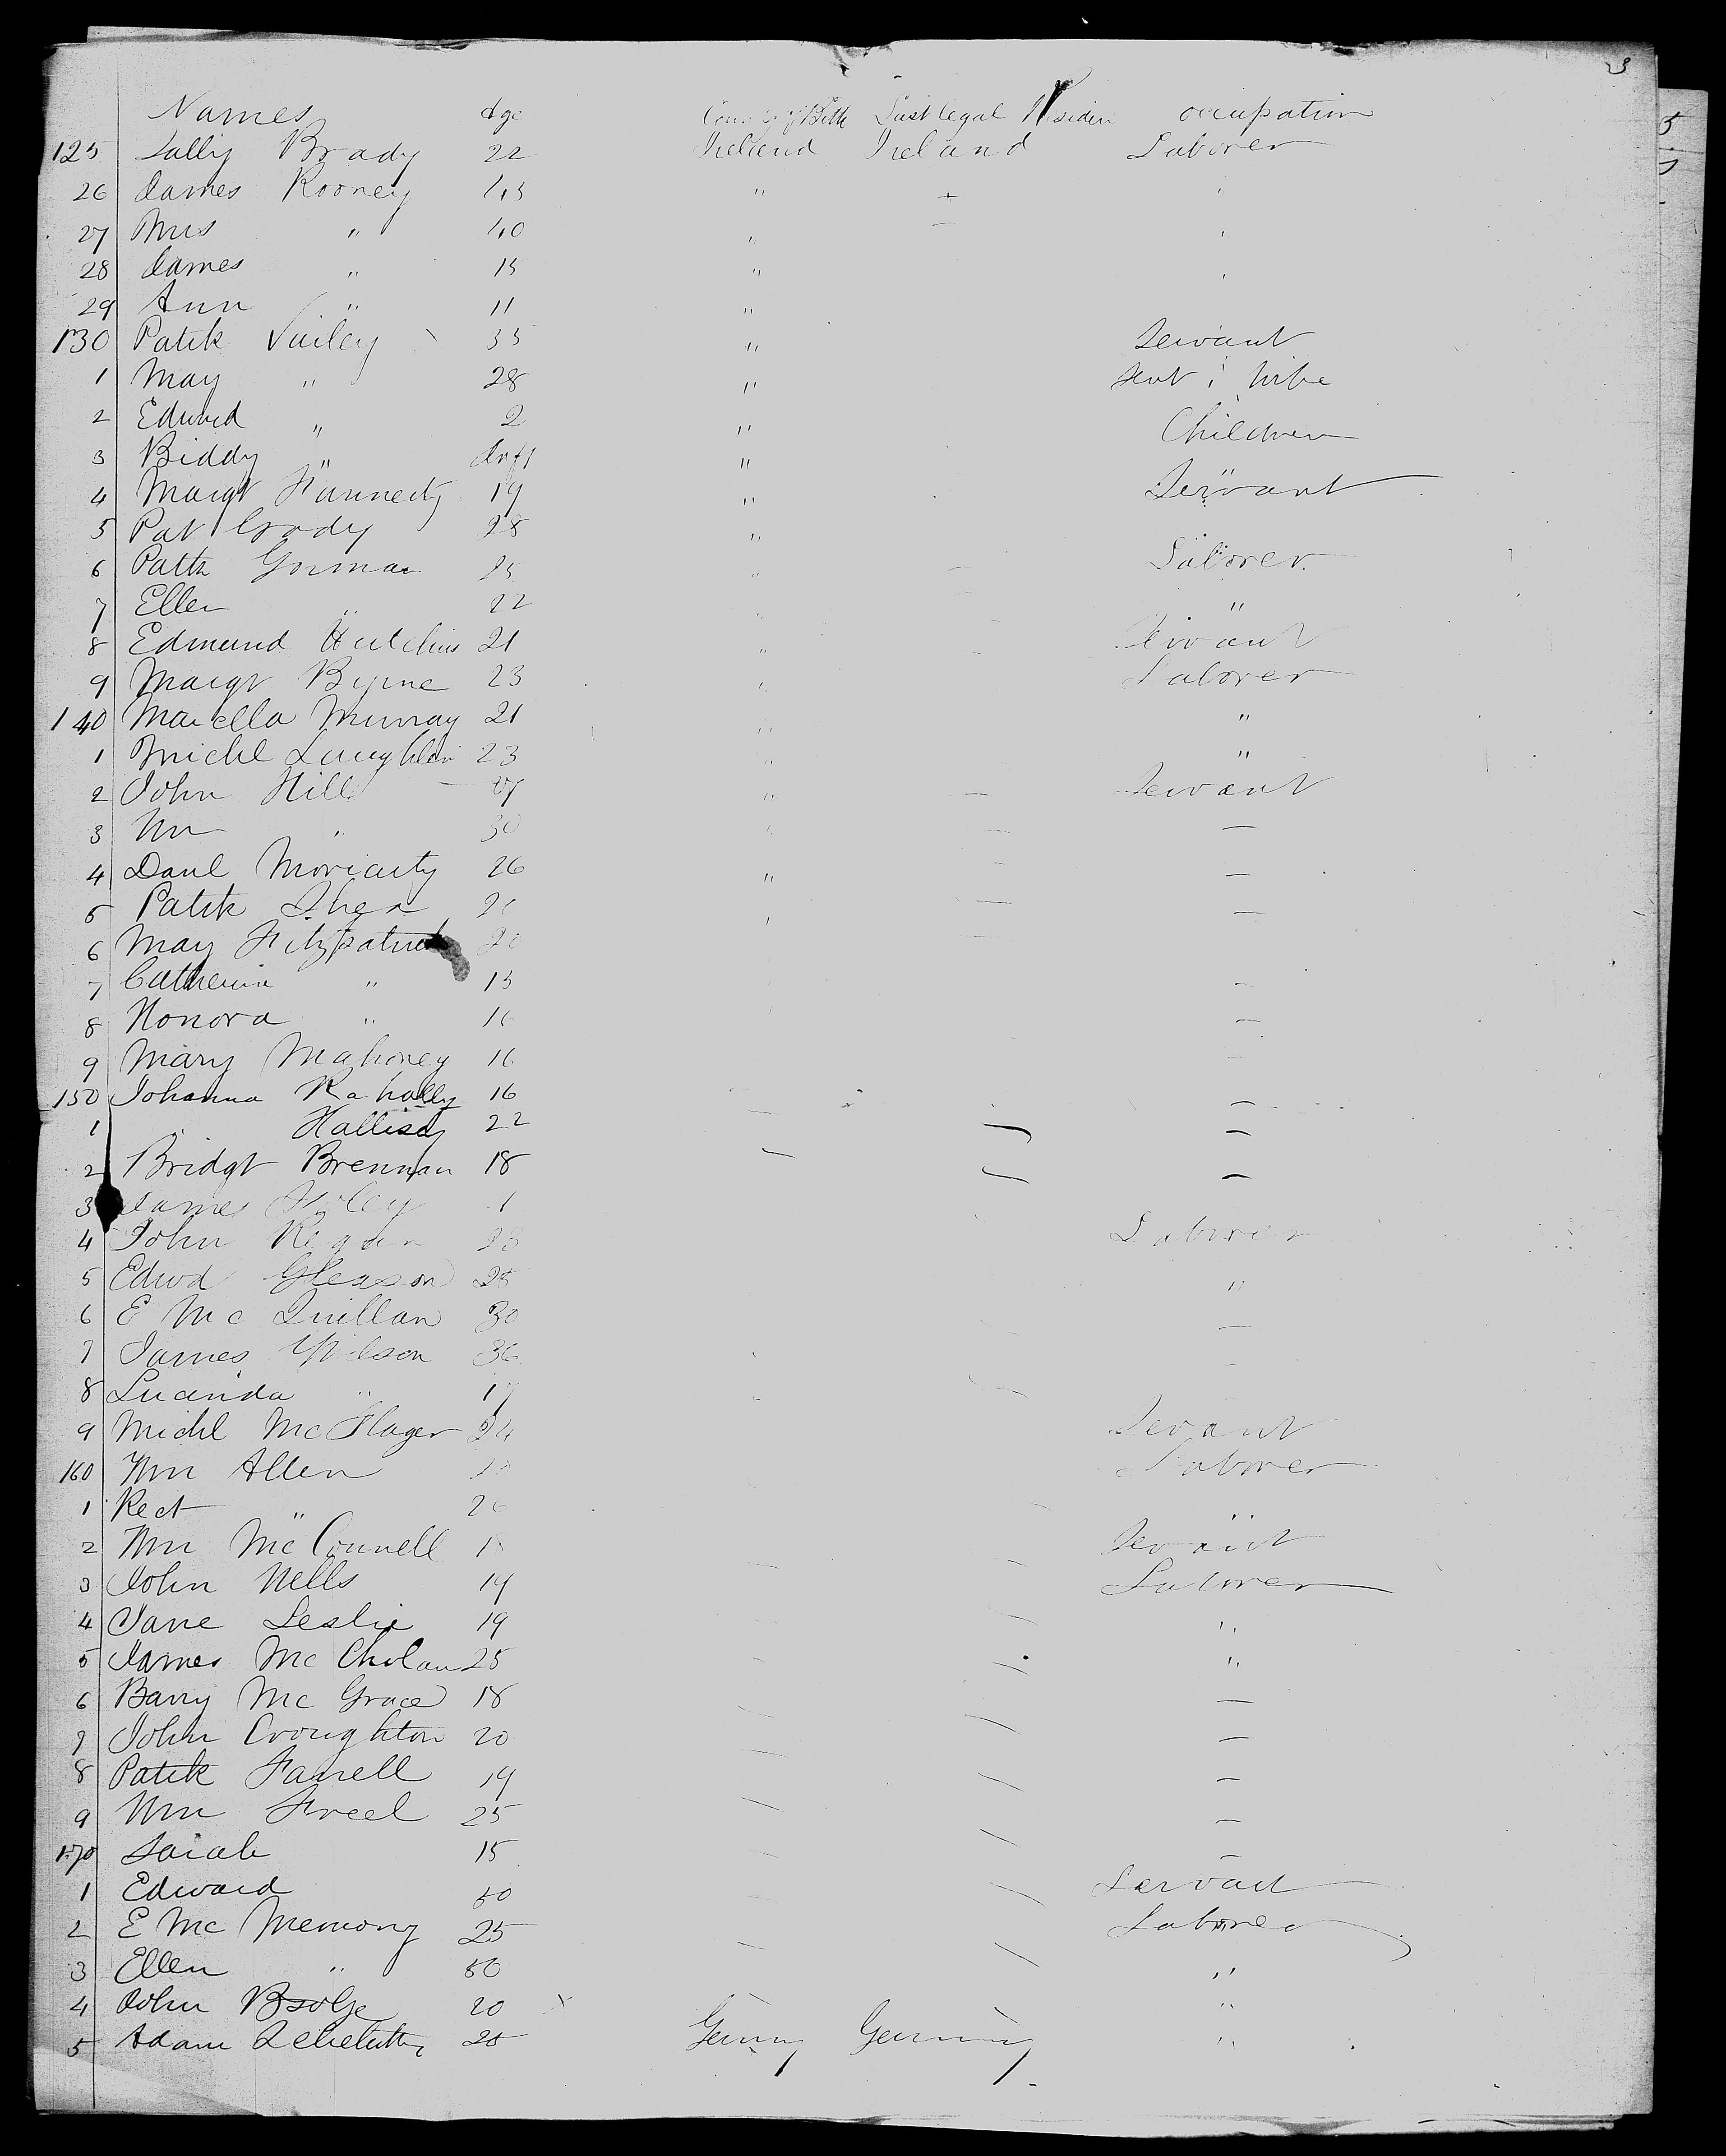 3
Names Age Country of Birth Last legal Residen occupation
125 Sally Brady 22 Ireland Ireland Laborer
26 James Rooney 43 " "
27 Mrs " 40 "
28 James " 15 "
29 Ann " 11 "
130 Patrk 35 " Servant
1 Mary " 28 " wife
2 Edward " 2 " Children
3 Biddy " Inft "
4 Margt 19 " Servant
5 Pat Grady 28 "
6 Patk Gorman 25 " Laborer
7 Ellen " 22 " "
8 Edmund Hutchins 21 " Servant
9 Margt Byrne 23 " Laborer
140 Marcella Murray 21 " "
1 Michl Laughlin 23 " "
2 John Hill " Servant
3 Wm " 30 "
4 Danl Moriarty 26 "
5 Patrk Shea
6 Mary Fitzpatrick 20
7 Catherine " 15
8 Honora "
9 Mary Mahoney 16
150 Johanna Rahally 16
1 " Hallisey 22
2 Bridgt Brennan 18
3 James Foley
4 John Regan Laborer
5 Edwd Gleason "
6 E Mc Quillan 30
7 James Wilson 36
8 Lucinda "
9 Michl Mc 24 Servant
160 Wm Allen Laborer
1 "
2 Wm McConnell Servant
3 John Wells 19 Laborer
4 Jane Leslie 19 "
5 James Mc 25 "
6 Barry Mc Grace 18
7 John Croughton 20
8 Patrk Farrell 19
9 Wm Freel 25
170 Sarah 15
1 Edward 50 Servant
2 E Mc 25 Laborer
3 Ellen " 50 "
4 John 20 "
5 Adam Germny Germany "